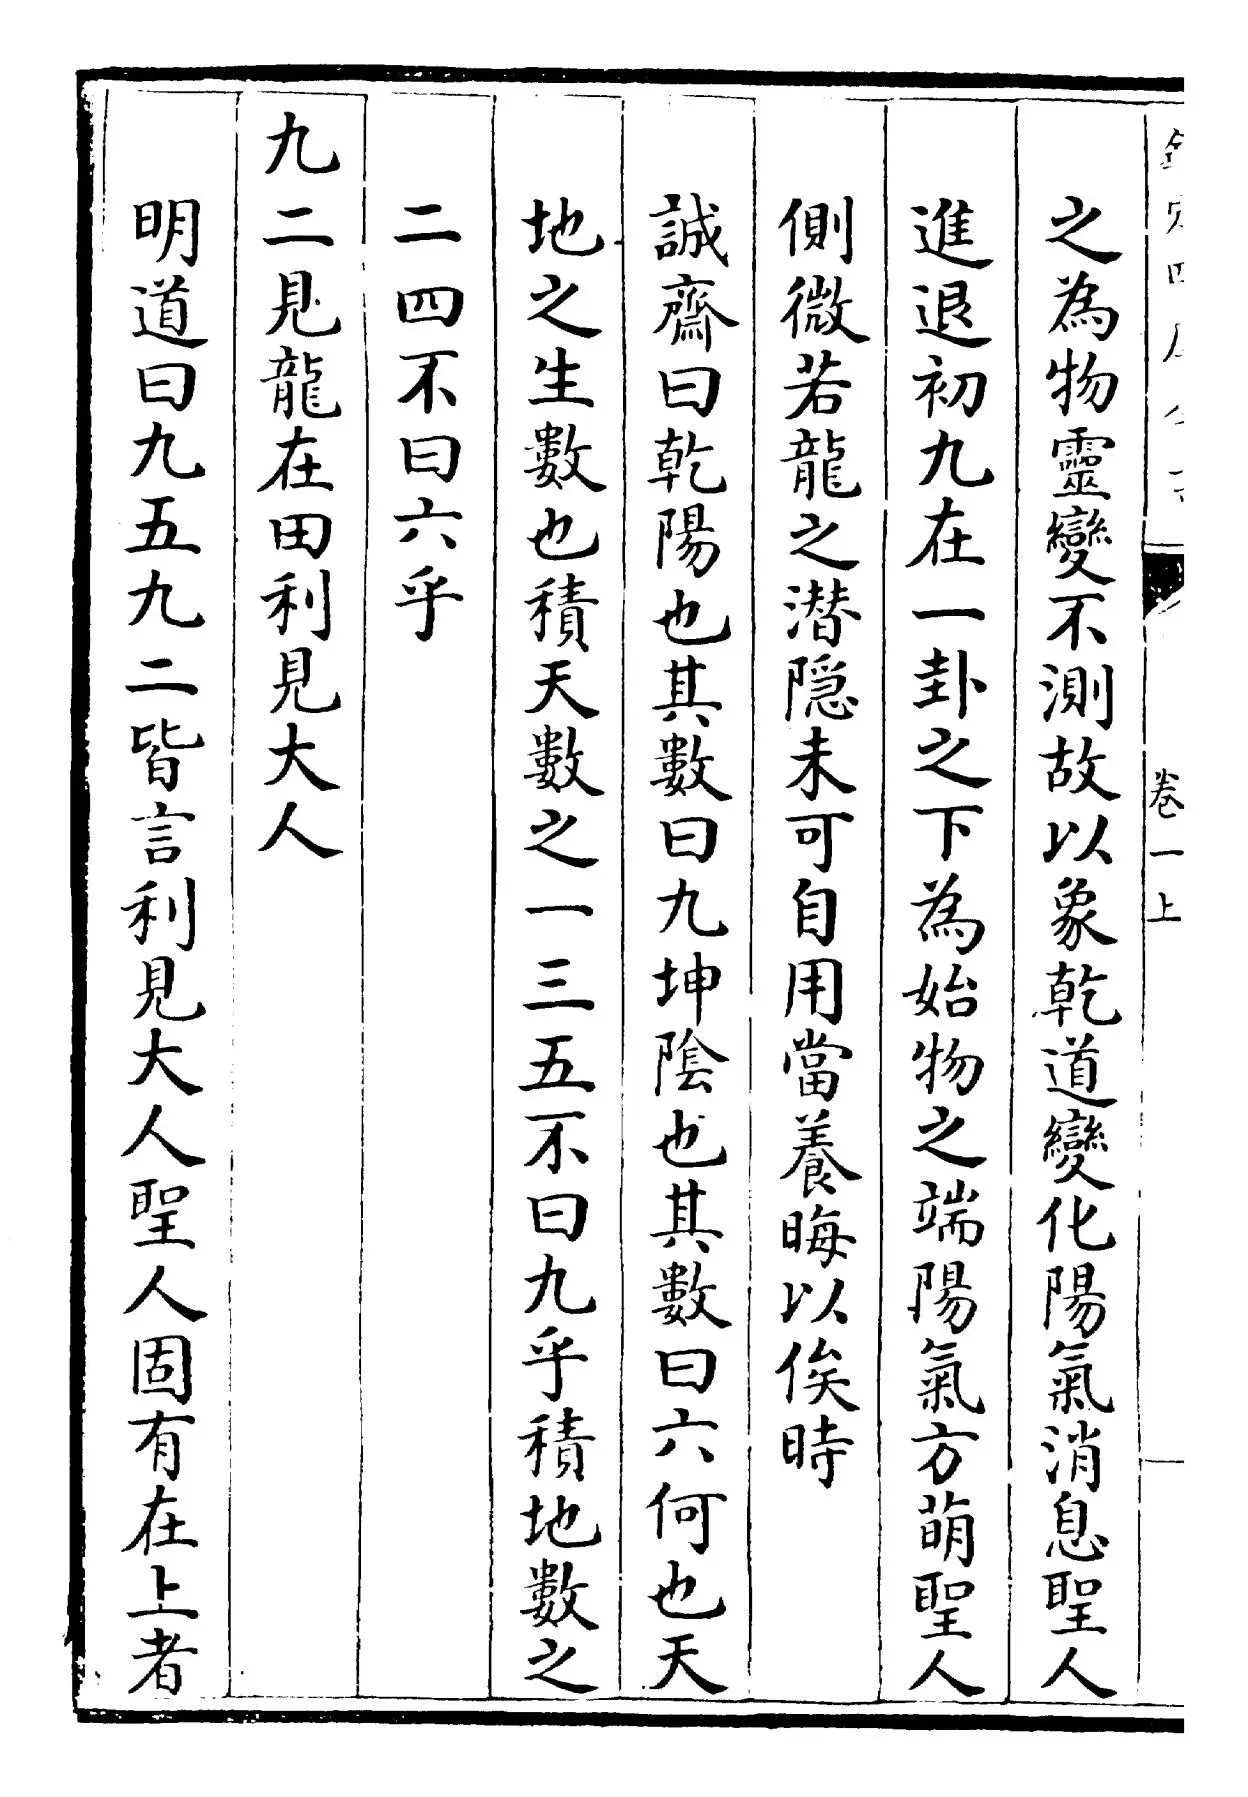 欽定四庫全書
卷一上
之為物靈變不測故以象乾道變化陽氣消息聖人
進退初九在一卦之下為始物之端陽氣方萌聖人
側微若龍之潛隠未可自用當養晦以俟時
誠齋曰乾陽也其數曰九坤陰也其數曰六何也天
地之生數也積天數之一三五不曰九乎積地數之
二四不曰六乎
九二見龍在田利見大人
明道曰九五九二皆言利見大人聖人固有在上者